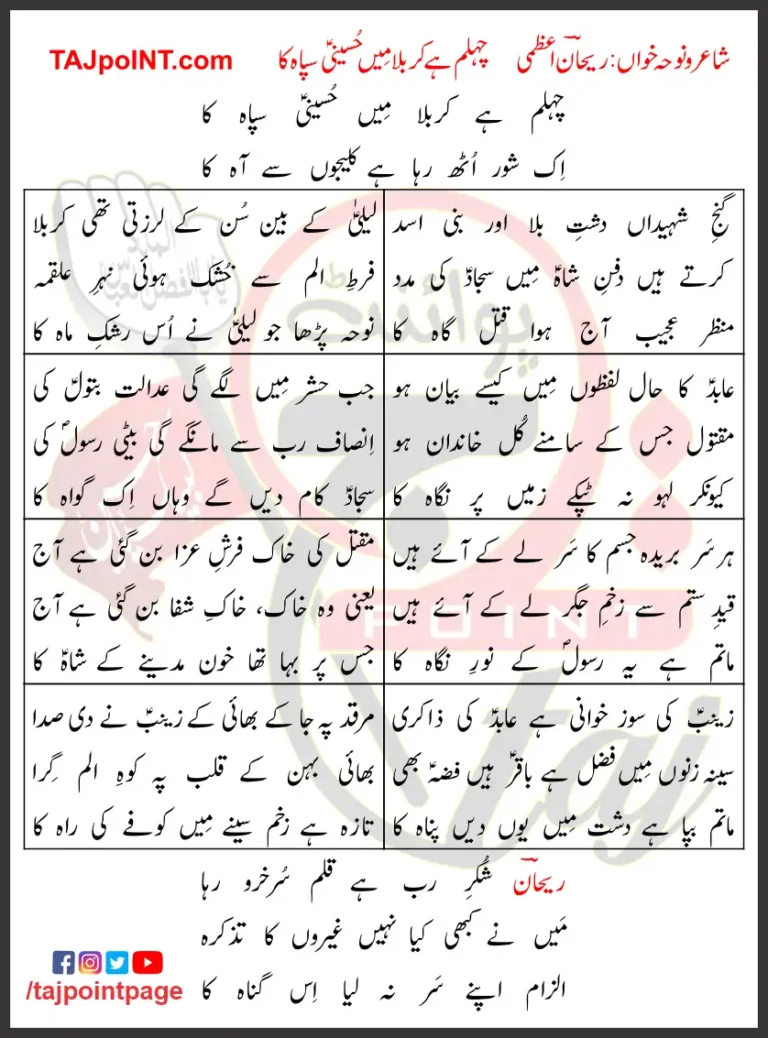 شاعر و نوحہ خواں: ریحانؔ اعظمی چہلم ہے کربلا میں حُسینیؑ سپاہ کا TAJpoINT.com
چہلم ہے کربلا میں حُسینیؑ سپاہ کا
اِک شور اُٹھ رہا ہے کلیجوں سے آہ کا
گنجِ شہیداں دشتِ بلا اور بنی اسد
کرتے ہیں دفنِ شاہؑ میں سجادؑ کی مدد
منظر عجیب آج ہوا قتل گاہ کا
لیلیٰؑ کے بین سُن کے لرزتی تھی کربلا
فرطِ الم سے خُشک ہوئی نہرِ علقمہ
نوحہ پڑھا جو لیلیٰؑ نے اُس رشکِ ماہ کا
عابدؑ کا حال لفظوں میں کیسے بیان ہو
مقتول جس کے سامنے کُل خاندان ہو
کیونکر لہو نہ ٹپکے زمیں پر نگاہ کا
جب حشر میں لگے گی عدالت بتولؑ کی
اِنصاف رب سے مانگے گی بیٹی رسولؐ کی
سجادؑ کام دیں گے وہاں اِک گواہ کا
ہر سَر بریدہ جسم کا سَر لے کے آئے ہیں
قیدِ ستم سے زخمِ جگر لے کے آئے ہیں
ماتم ہے یہ رسولؐ کے نورِ نگاہ کا
مقتل کی خاک فرشِ عزا بن گئی ہے آج
یعنی وہ خاک، خاکِ شفا بن گئی ہے آج
جس پر بہا تھا خون مدینے کے شاہؑ کا
زینبؑ کی سوز خوانی ہے عابدؑ کی ذاکری
سینہ زنوں میں فضل ہے باقرؑ ہیں فضہؑ بھی
ماتم بپا ہے دشت میں یوں دیں پناہ کا
مرقد پہ جا کے بھائی کے زینبؑ نے دی صدا
بھائی بہن کے قلب پہ کوہِ الم گِرا
تازہ ہے زخم سینے میں کوفے کی راہ کا
ریحانؔ شُکرِ رب ہے قلم سُرخرو رہا
مَیں نے کبھی کیا نہیں غیروں کا تذکرہ
الزام اپنے سَر نہ لیا اِس گناہ کا
/tajpointpage
پوائنٹ
POINT
taj